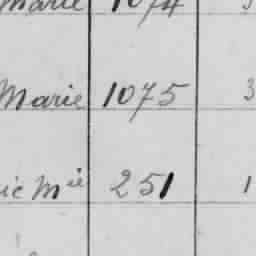 Marie 1074 3
Marie 1075 3
ic Mie 251 1